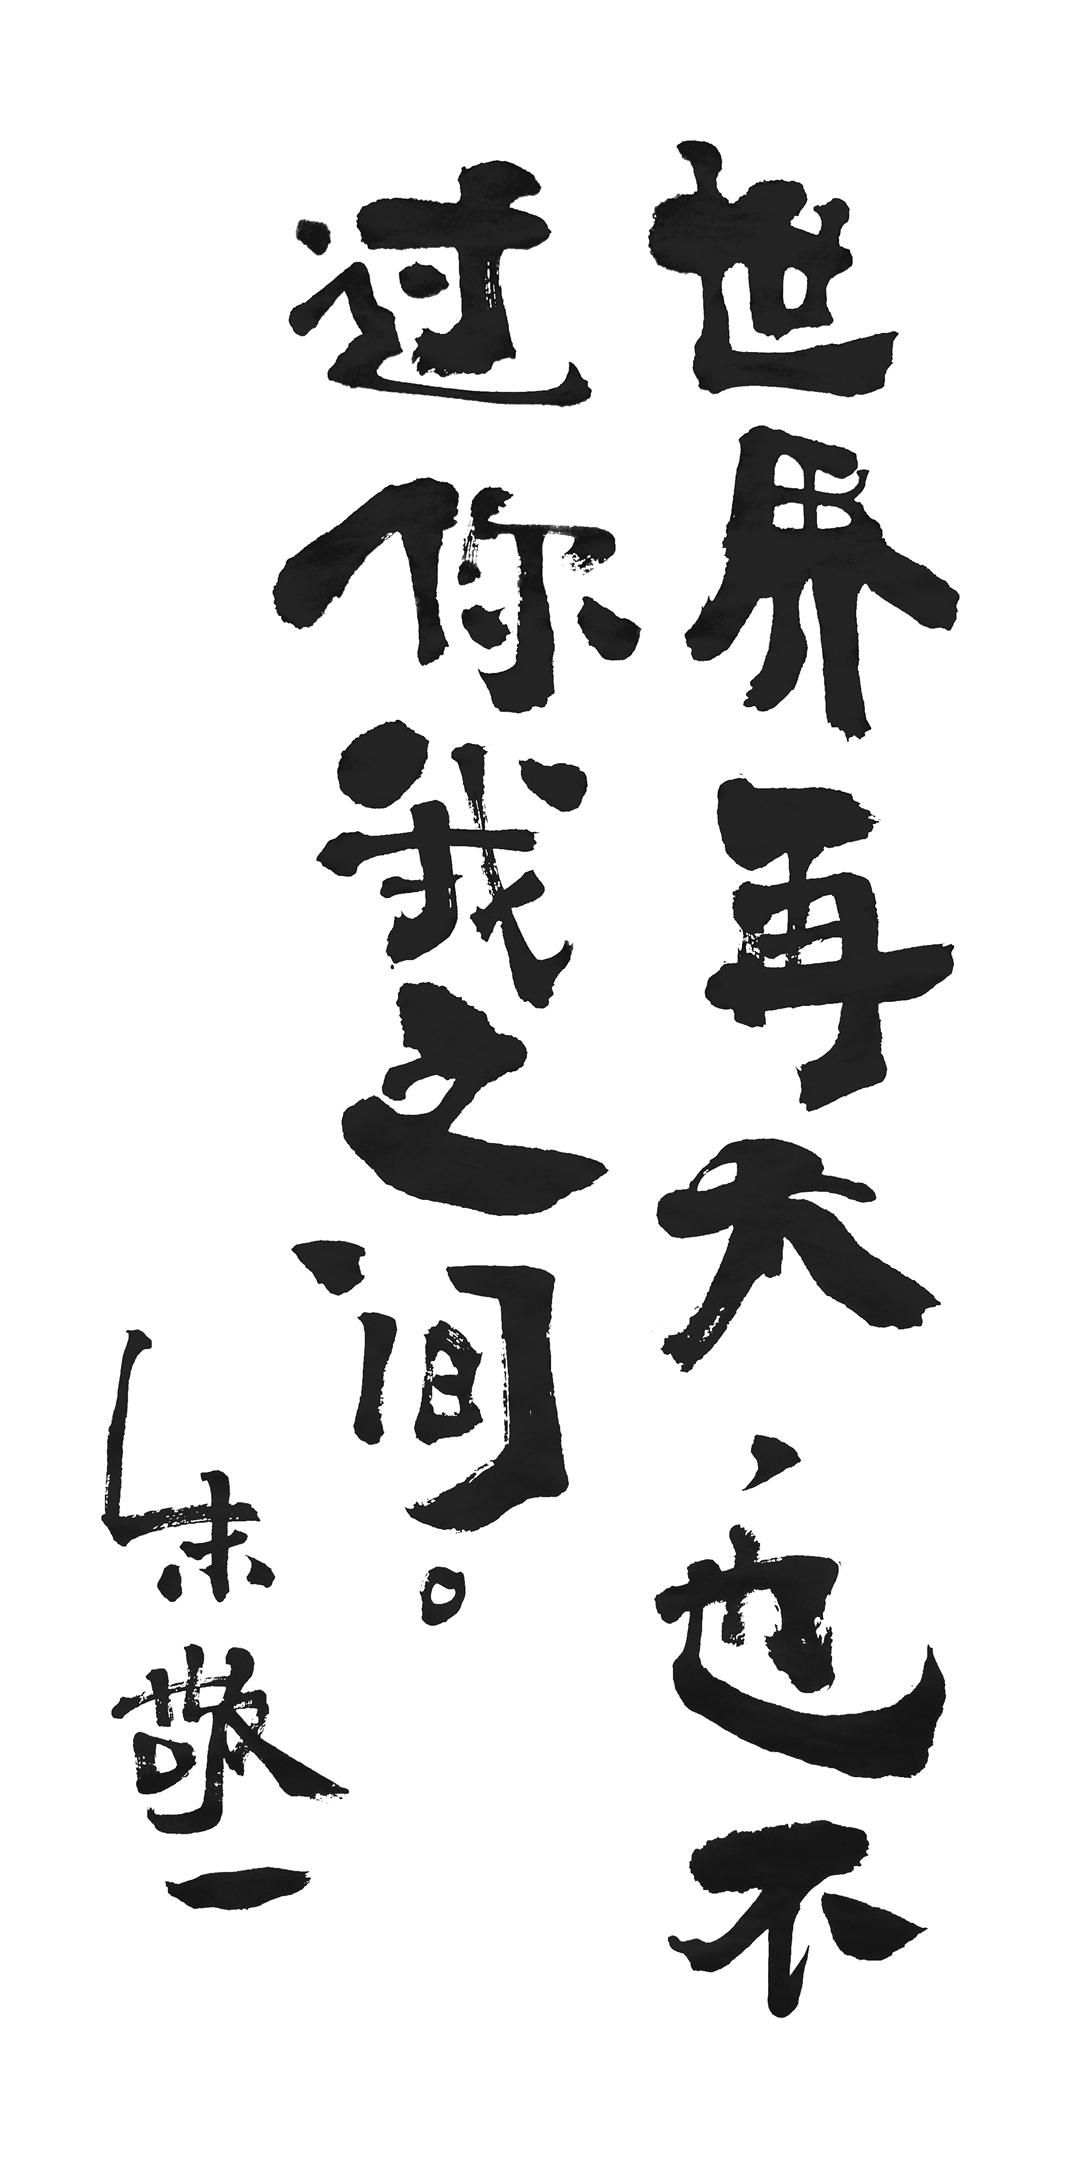 世界再大、也不
过你我之间。
朱敬一